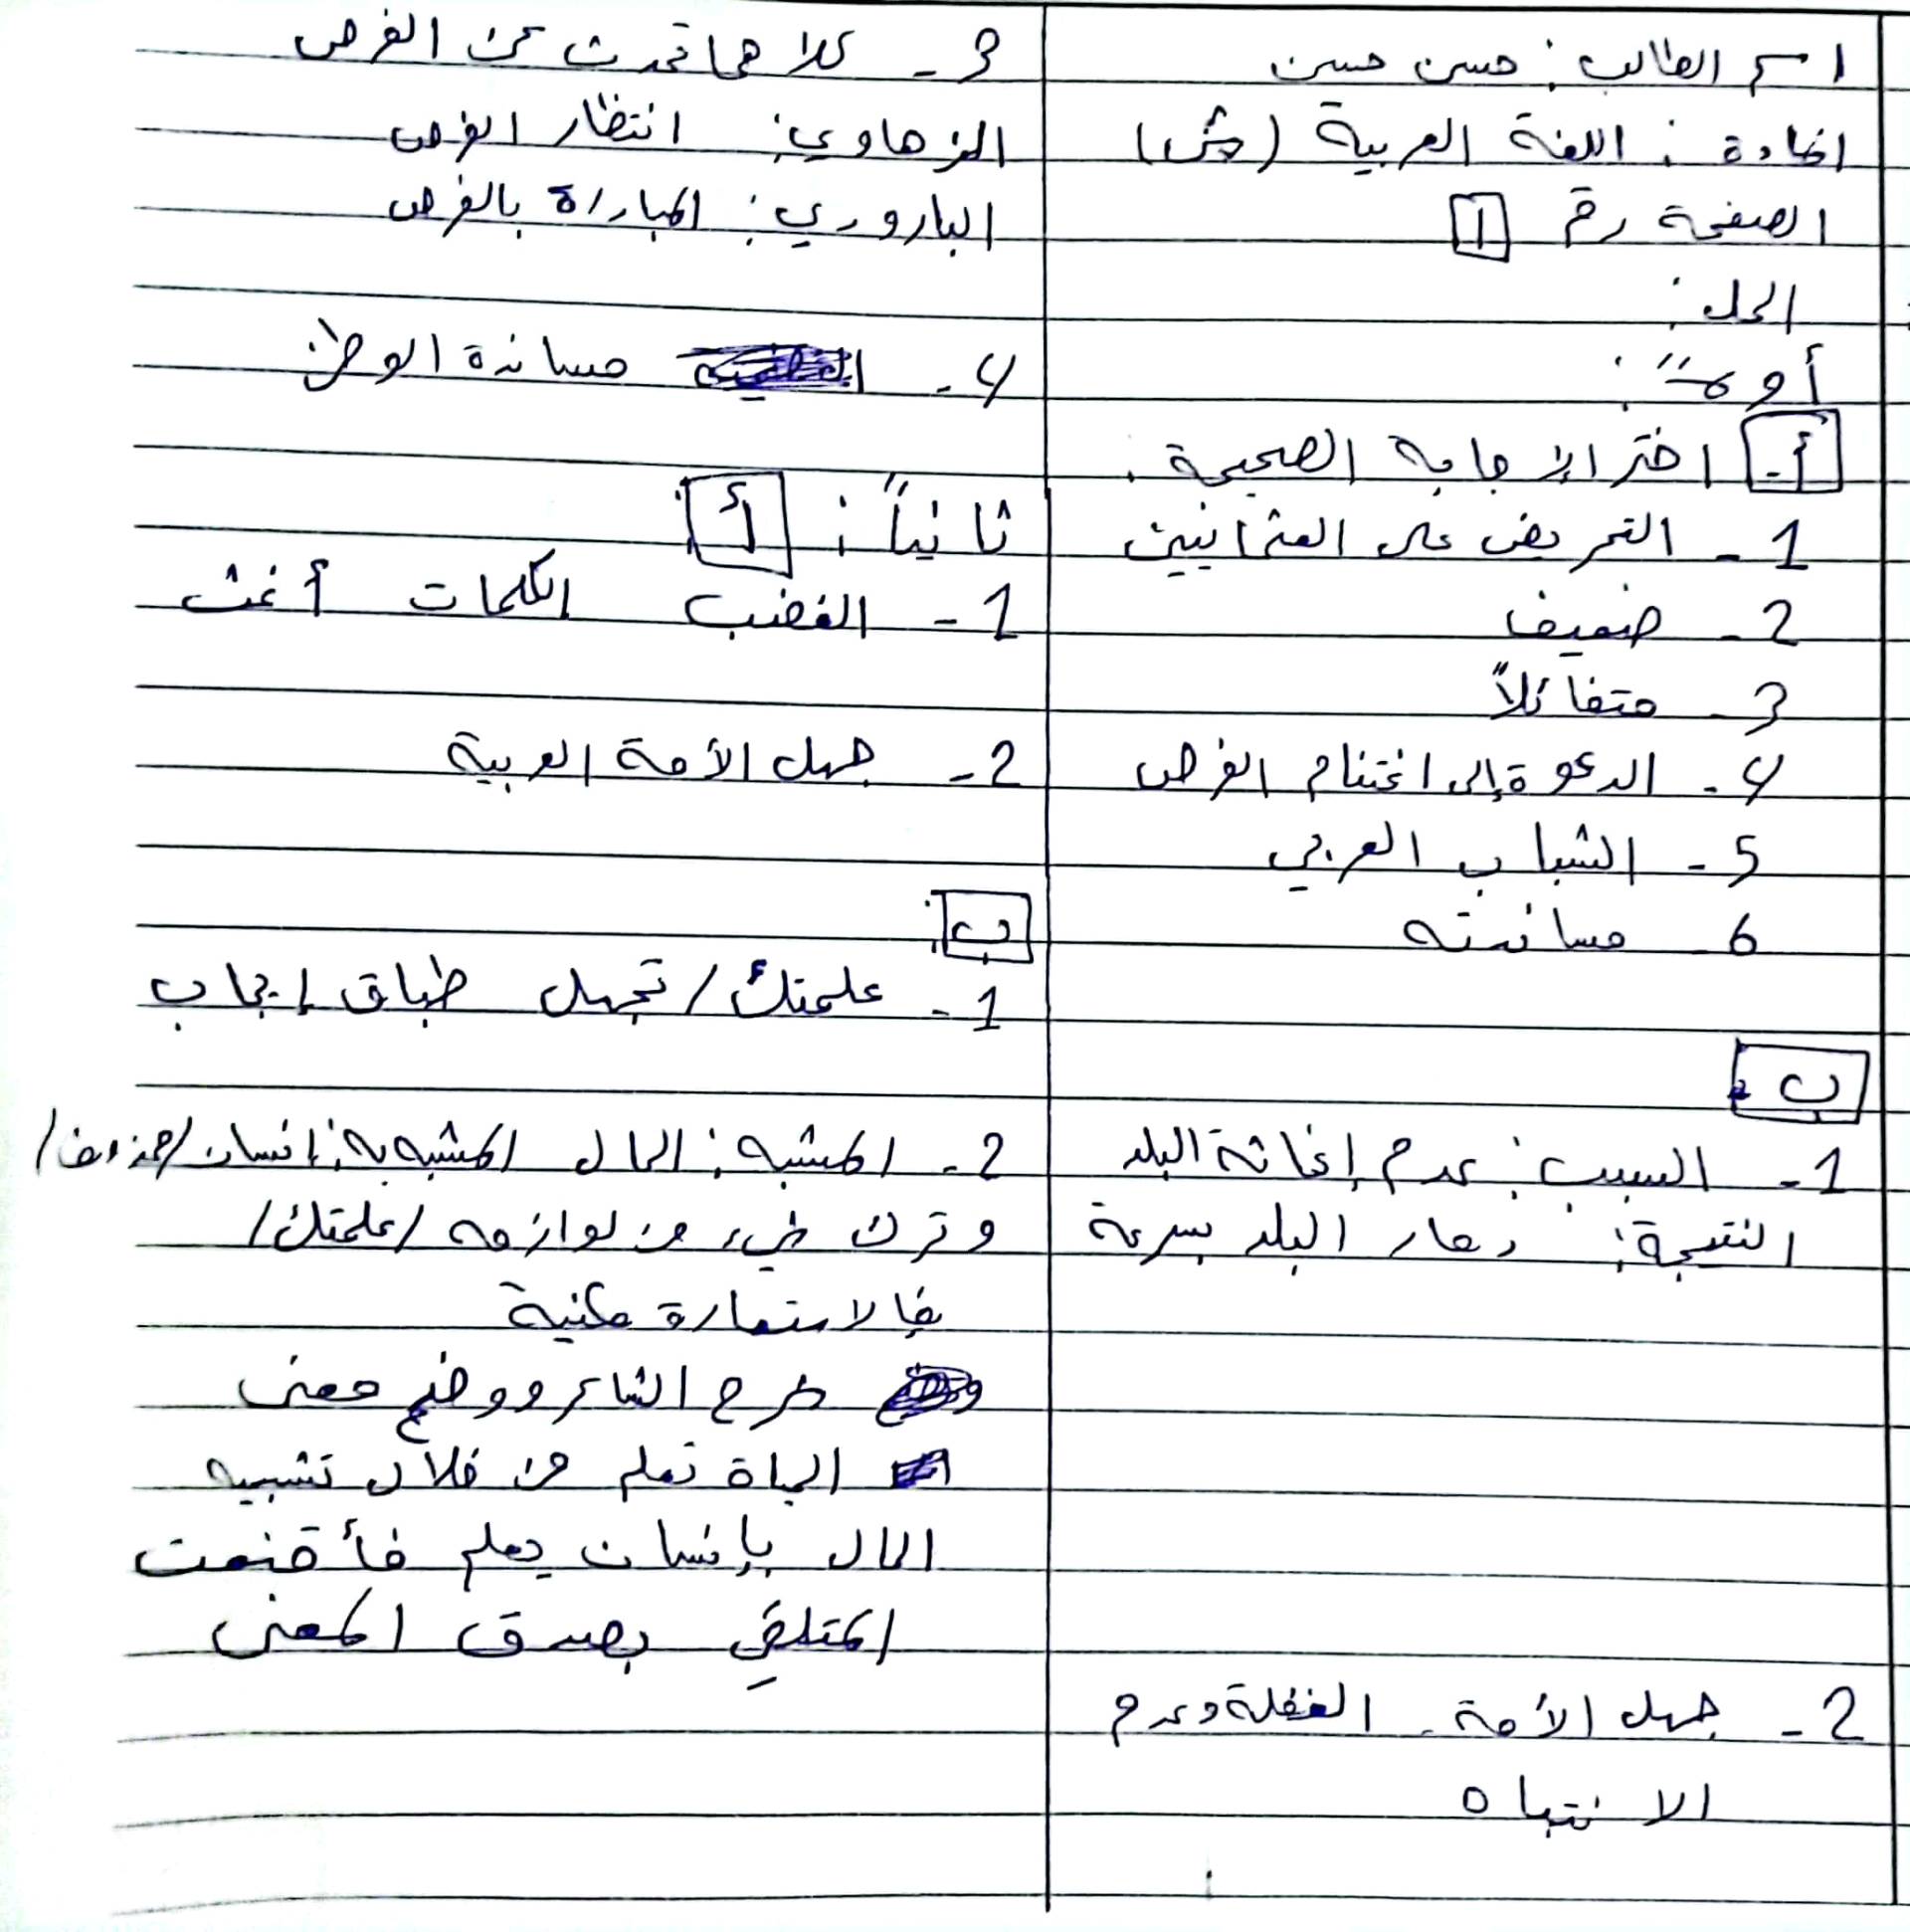 اسم الطالب: حسن حسن
المادة: اللغة العربية (حش)
الصفحة رقم 1
الحل:
أولاً:
أ- اختر الإجابة الصحيحة.
1- التحريض على العثمانيين
2- ضعيف
3- متفائلاً
4- الدعوة إلى اغتنام الفرص
5- الشباب العربي
6- مساندته
ب-
1- السبب: عدم إغاثة البلد
النتيجة: دمار البلد بسرعة
2- جهل الأمة - الغفلة وعدم
الانتباه
3- كلاهما تحدث عن الفرص
الزهاوي: انتظار الفرص
البارودي: المباراة بالفرص
4- مساندة الوطن
ثانياً: أ-
1- الغضب الكلمات أغث
2- جهل الأمة العربية
ب-
1- علمتك/تجهل طباق إيجاب
2- المشبه: الحال المشبه به: إنسان/محذوف/
وترك شيء من لوازمه /علمتك/
فالاستعارة مكنية
شرح الشاعر ووضح معنى
الحياة تعلم من خلال تشبيه
الحال بإنسان يعلم فأقنعت
المتلقي بصدق المعنى